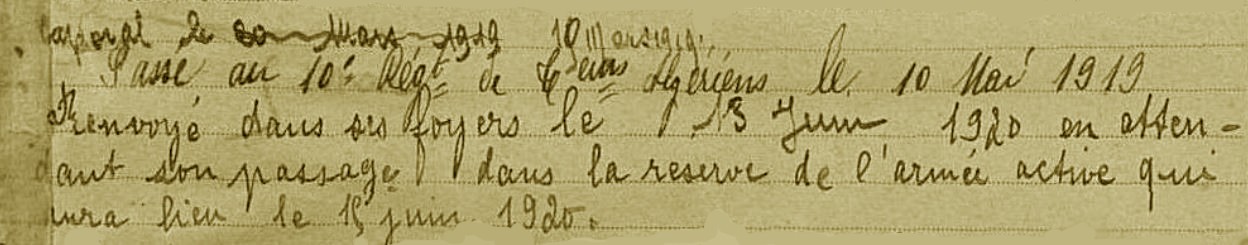 Caporal le 20 Mars 1919 10 Mars 1919.
Passé au 10e Régt de Tirailleurs Algériens le 10 Mai 1919
Renvoyé dans ses foyers le 13 Juin 1920 en atten-
dant son passage dans la reserve de l'armée active qui
aura lieu le 15 juin 1920.